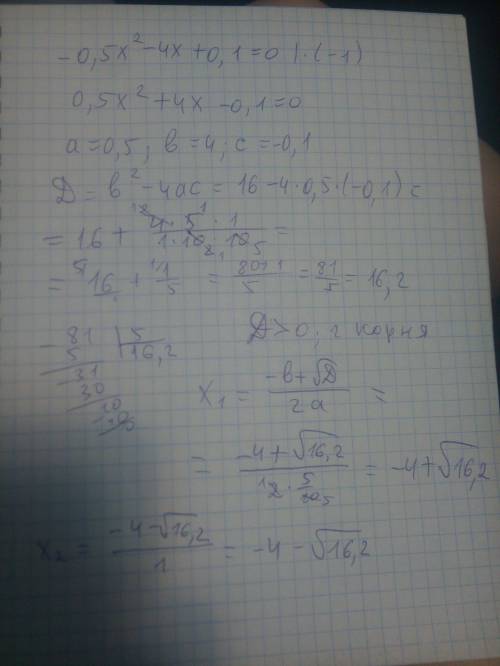 -0,5x²-4x+0,1=0 |·(-1)
0,5x²+4x-0,1=0
a=0,5; b=4; c=-0,1
D = b²-4ac = 16-4·0,5·(-0,1) c
= 16 + 4·5·1 / 1·10·10 =
= 16 + 1/5 = 80+1 / 5 = 81/5 = 16,2
- 81 | 5
5 16,2
31
30
10
D>0; 2 корня
x₁ = -b+√D / 2a =
= -4+√16,2 / 2·5/10 = -4+√16,2
x₂ = -4-√16,2 / 1 = -4-√16,2